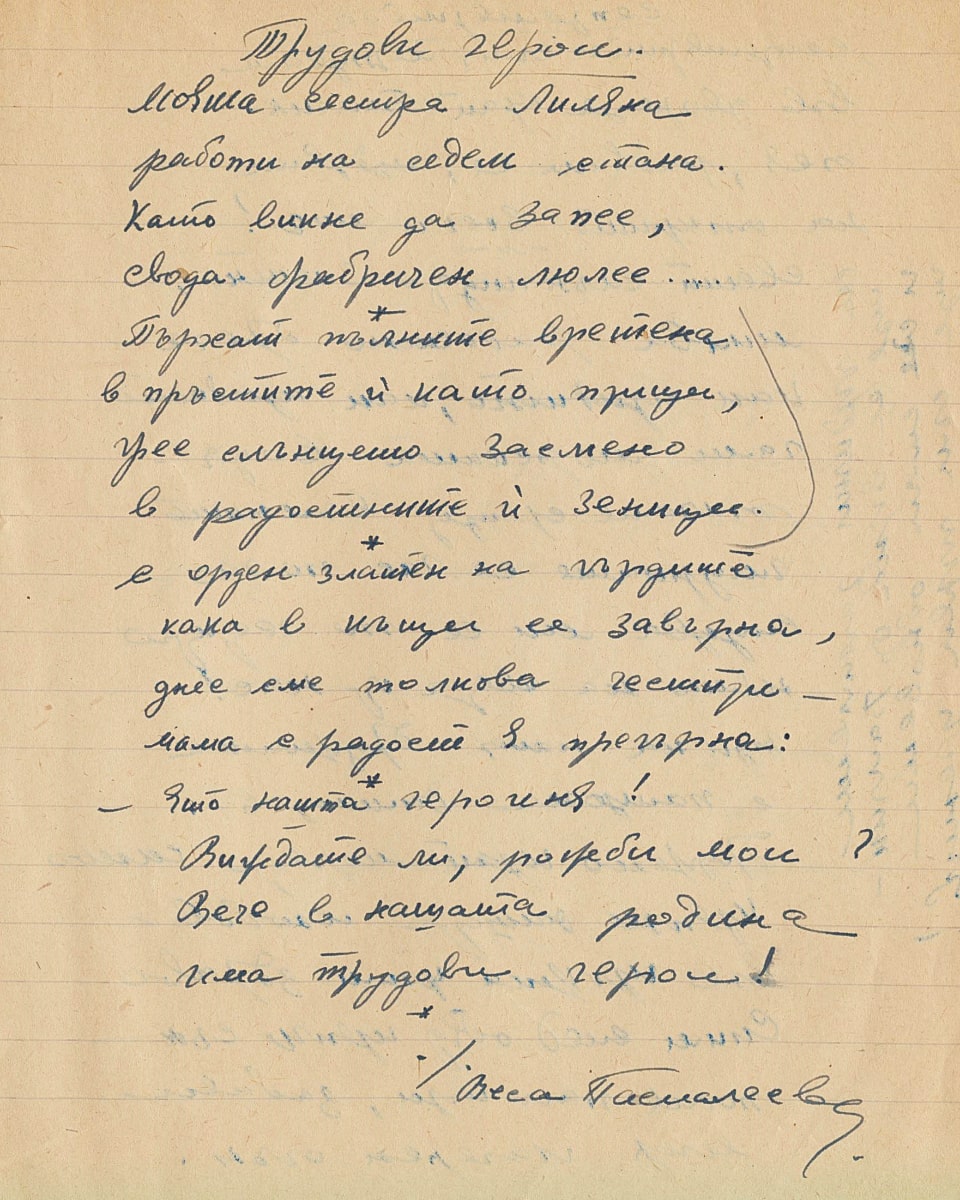 Трудови герои.
Моята сестра Лиляна
работи на седем стана.
Като викне да запее,
свода фабричен люлее....
*
Пърхат пълните вретена
в пръстите ѝ като птици,
грее слънцето засмено
в радостните ѝ зеници.
*
с орден златен на гърдите
кака в къщи се завърна,
днес сме толкова честити —
мама с радост я прегърна:
*
— Ято нашта героиня!
Виждате ли, рожби мои?
Вече в нашата родина
има трудови герои!
*
Веса Паспалеева